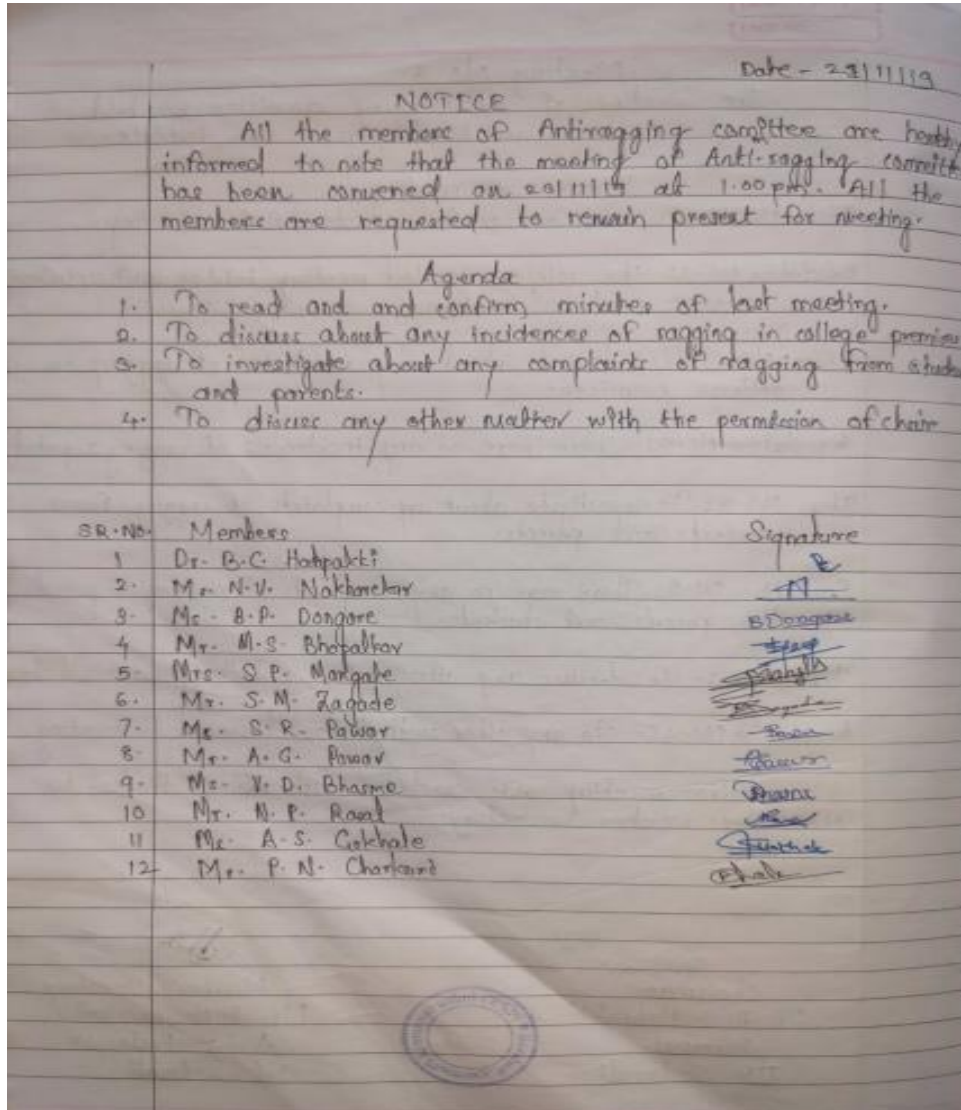 Date - 23/11/19
NOTICE
All the members of Antiragging committee are
informed to note that the meeting of Anti-ragging committ
has been convened on at 1.00 pm. All the
members are requested to remain present for meeting.
Agenda
1. To read and and confirm minutes of last meeting.
2. To discuss about any incidences of ragging in college premise
3. To investigate about any complaints of ragging from
and parents.
4. To discuss any other matter with the permission of chair
SR.NO. Members Signature
1 Dr. B.C. Hatpakti
2. Mr. N.V. Nakharekar
3. Ms. B.P. Dongare BDongare
4 Mr. M.S. Bhopalkar
5. Mrs. S P. Mangale
6. Mr. S.M. Zagade
7. Ms. S.R. Pawar
8. Mr. A.G. Pawar
9. Ms. V.D. Bhasme
10 Mr. N.P. Rasal
11 Ms. A.S. Gokhale
12 Mr. P.N.